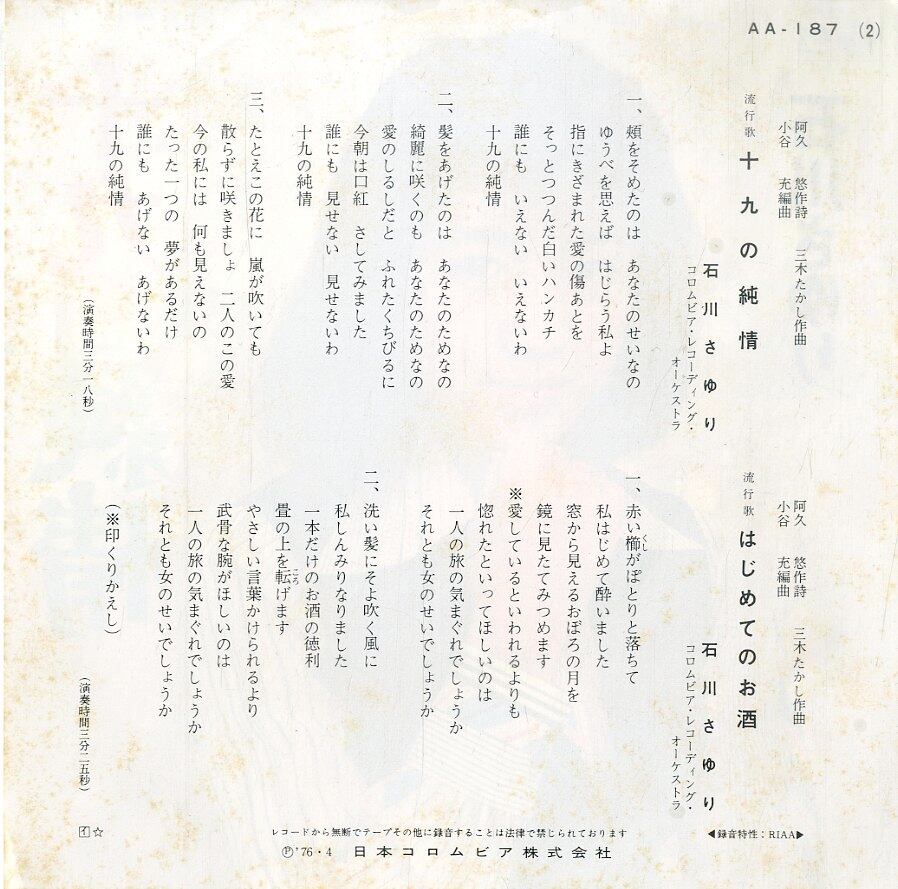 AA-187 (2)
阿久 悠作詩 三木たかし作曲
小谷 充編曲
流行歌 十九の純情
石川さゆり
コロムビア・レコーディング・
オーケストラ
一、頬をそめたのは あなたのせいなの
ゆうべを思えば はじらう私よ
指にきざまれた愛の傷あとを
そっとつつんだ白いハンカチ
誰にも いえない いえないわ
十九の純情
二、髪をあげたのは あなたのためなの
綺麗に咲くのも あなたのためなの
愛のしるしだと ふれたくちびるに
今朝は口紅 さしてみました
誰にも 見せない 見せないわ
十九の純情
三、たとえこの花に 嵐が吹いても
散らずに咲きましょ 二人のこの愛
今の私には 何も見えないの
たった一つの 夢があるだけ
誰にも あげない あげないわ
十九の純情
(演奏時間三分一八秒)
阿久 悠作詩 三木たかし作曲
小谷 充編曲
流行歌 はじめてのお酒
石川さゆり
コロムビア・レコーディング・
オーケストラ
一、赤い櫛がぽとりと落ちて
くし
私はじめて酔いました
窓から見えるおぼろの月を
鏡に見たてみつめます
※愛しているといわれるよりも
惚れたといってほしいのは
一人の旅の気まぐれでしょうか
それとも女のせいでしょうか
二、洗い髪にそよ吹く風に
私しんみりなりました
一本だけのお酒の徳利
畳の上を転げます
やさしい言葉かけられるより
武骨な腕がほしいのは
一人の旅の気まぐれでしょうか
それとも女のせいでしょうか
(※印くりかえし)
(演奏時間三分二五秒)
◀録音特性:RIAA▶
レコードから無断でテープその他に録音することは法律で禁じられております
Ⓟ'76・4 日本コロムビア株式会社
イ☆